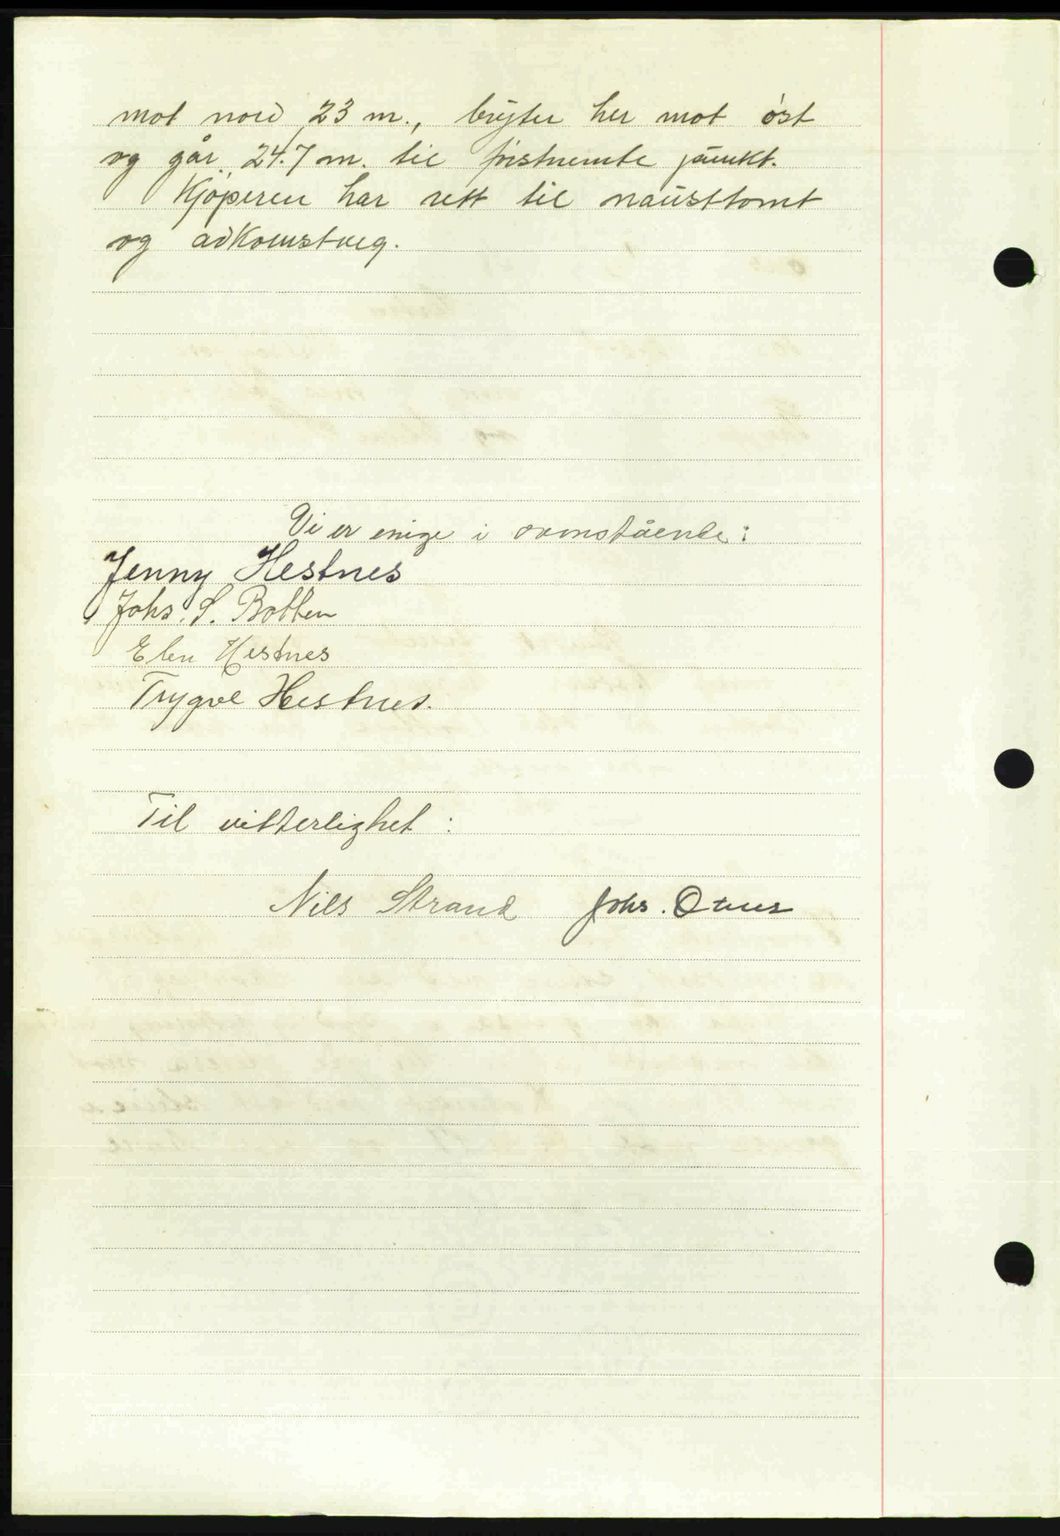 mot nord 23 m., bryter her mot øst
og går 24.7 m. til fristnemte punkt.
Kjöperen har rett til nausttomt
og adkomstveg.
Vi er enige i ovenstående:
Jenny Hestnes
Johs. S. Botten
Elen Hestnes
Trygve Hestnes.
Til vitterlighet :
Nils Strand Johs. Otnes